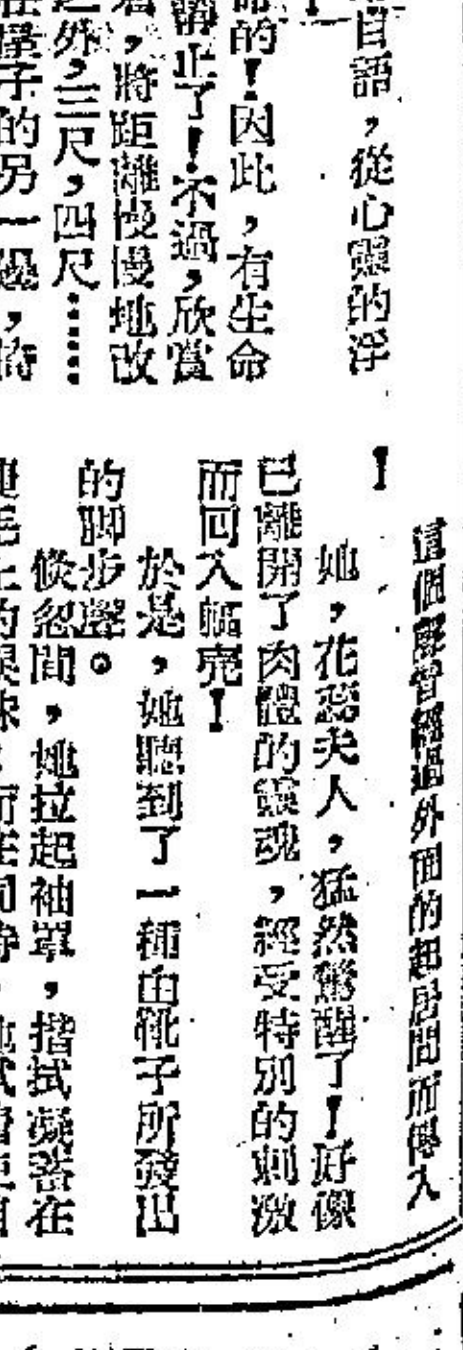 自語，從心靈的浮
！
命的！因此，有生命
止了！不過，欣賞
着，將距離慢慢地改
之外，三尺，四尺……
屋子的另一邊，將
這個聲音經過外面的起居間而傳入
！
她，花蕊夫人，猛然驚醒了！好像
已離開了肉體的靈魂，經受特別的刺激
而回入軀壳！
於是，她聽到了一種由靴子所發出
的脚步聲。
倐忽間，她拉起袖罩，揩拭凝落在